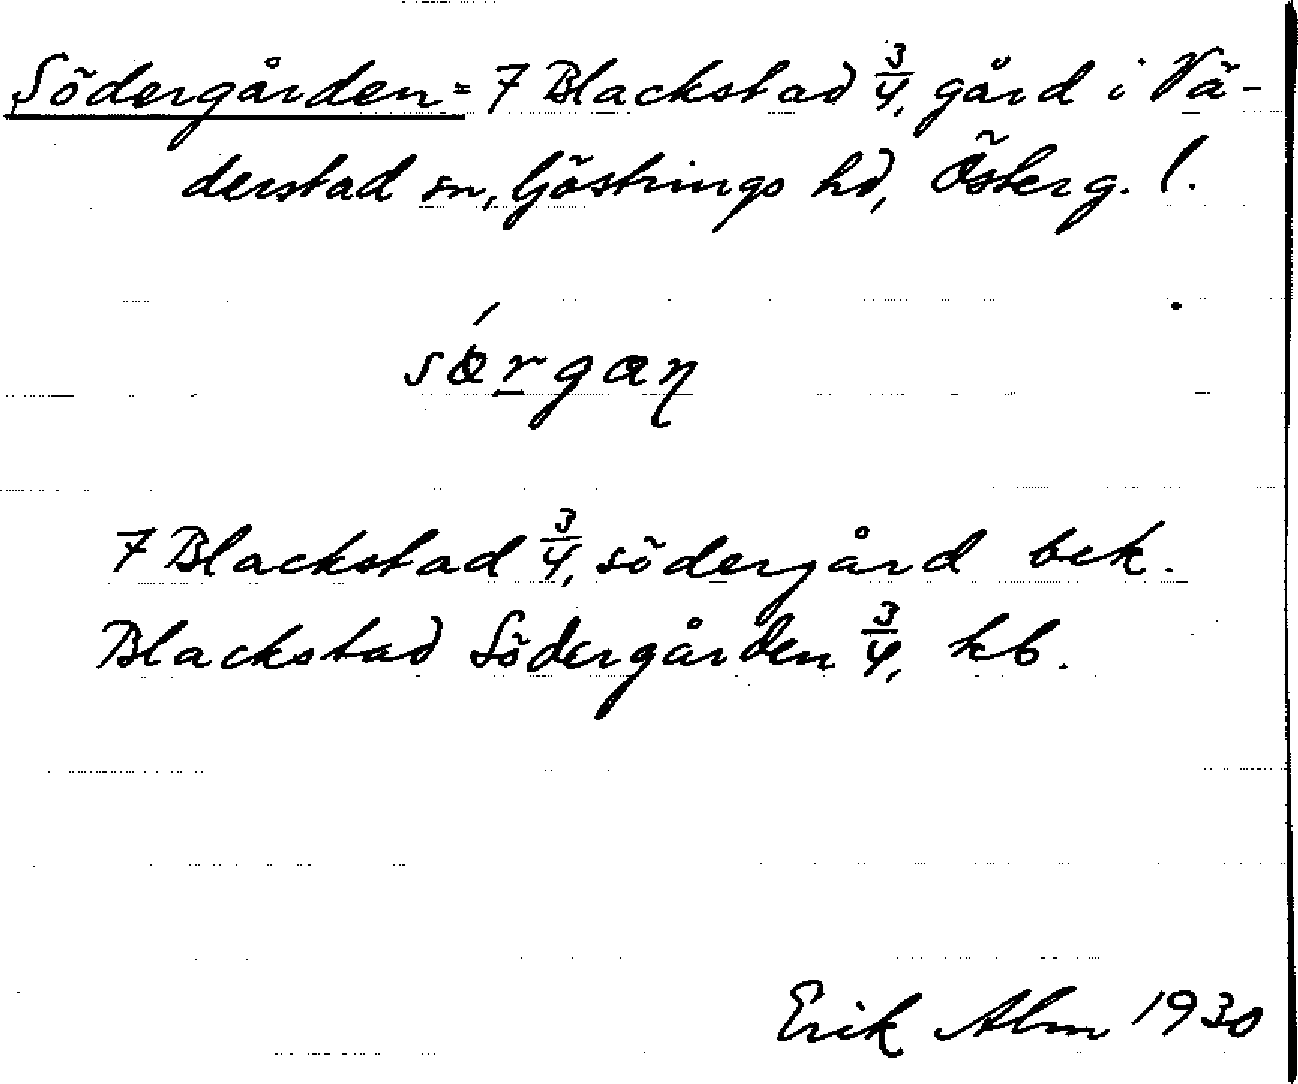 Södergården = 7 Blackstad 3/4, gård i Vä-
derstad sn, Göstrings hd, Österg. l.
7 Blackstad 3/4, södergård bek.
Blackstad Södergården 3/4, kb.
Erik Alm 1930